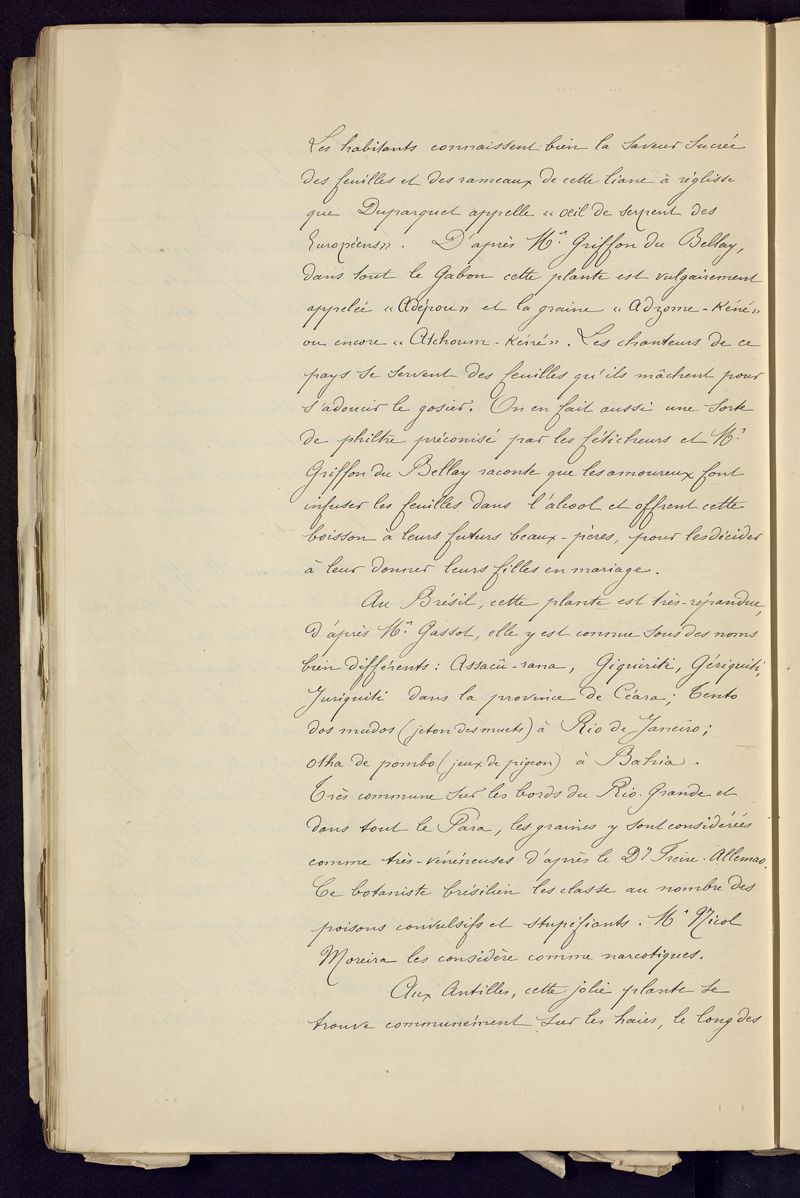 Les habitants connaissent bien la saveur sucrée
des feuilles et des rameaux de cette liane à réglisse
que Duparquet appelle « œil de serpent des
Européens ». D'après Mr. Griffon du Bellay,
dans tout le Gabon cette plante est vulgairement
appelée « Adépou » et la graine « Adzome-Kéné »
ou encore « Atchoum-Kéné ». Les chanteurs de ce
pays se servent des feuilles qu'ils mâchent pour
s'adoucir le gosier. On en fait aussi une sorte
de philtre préconisé par les féticheurs et Mr.
Griffon du Bellay raconte que les amoureux font
infuser les feuilles dans l'alcool et offrent cette
boisson à leurs futurs beaux-pères, pour les décider
à leur donner leurs filles en mariage.
Au Brésil, cette plante est très-répandue,
d'après Mr. Gassot, elle y est connue sous des noms
bien différents : Assacü-rana, Giquirite, Gériquiti,
Juriquiti dans la province de Céara ; Tento
dos mudos (jeton des muets) à Rio de Janeiro ;
olha de pombo (jeux de pigeon) à Bahia.
Très commune sur les bords du Rio-Grande et
dans tout le Para, les graines y sont considérées
comme très-vénéneuses d'après le Dr Freire-Allemao.
Ce botaniste brésilien les classe au nombre des
poisons convulsifs et stupéfiants. Mr Nicol
Moreira les considère comme narcotiques.
Aux Antilles, cette jolie plante se
trouve communément sur les haies, le long des